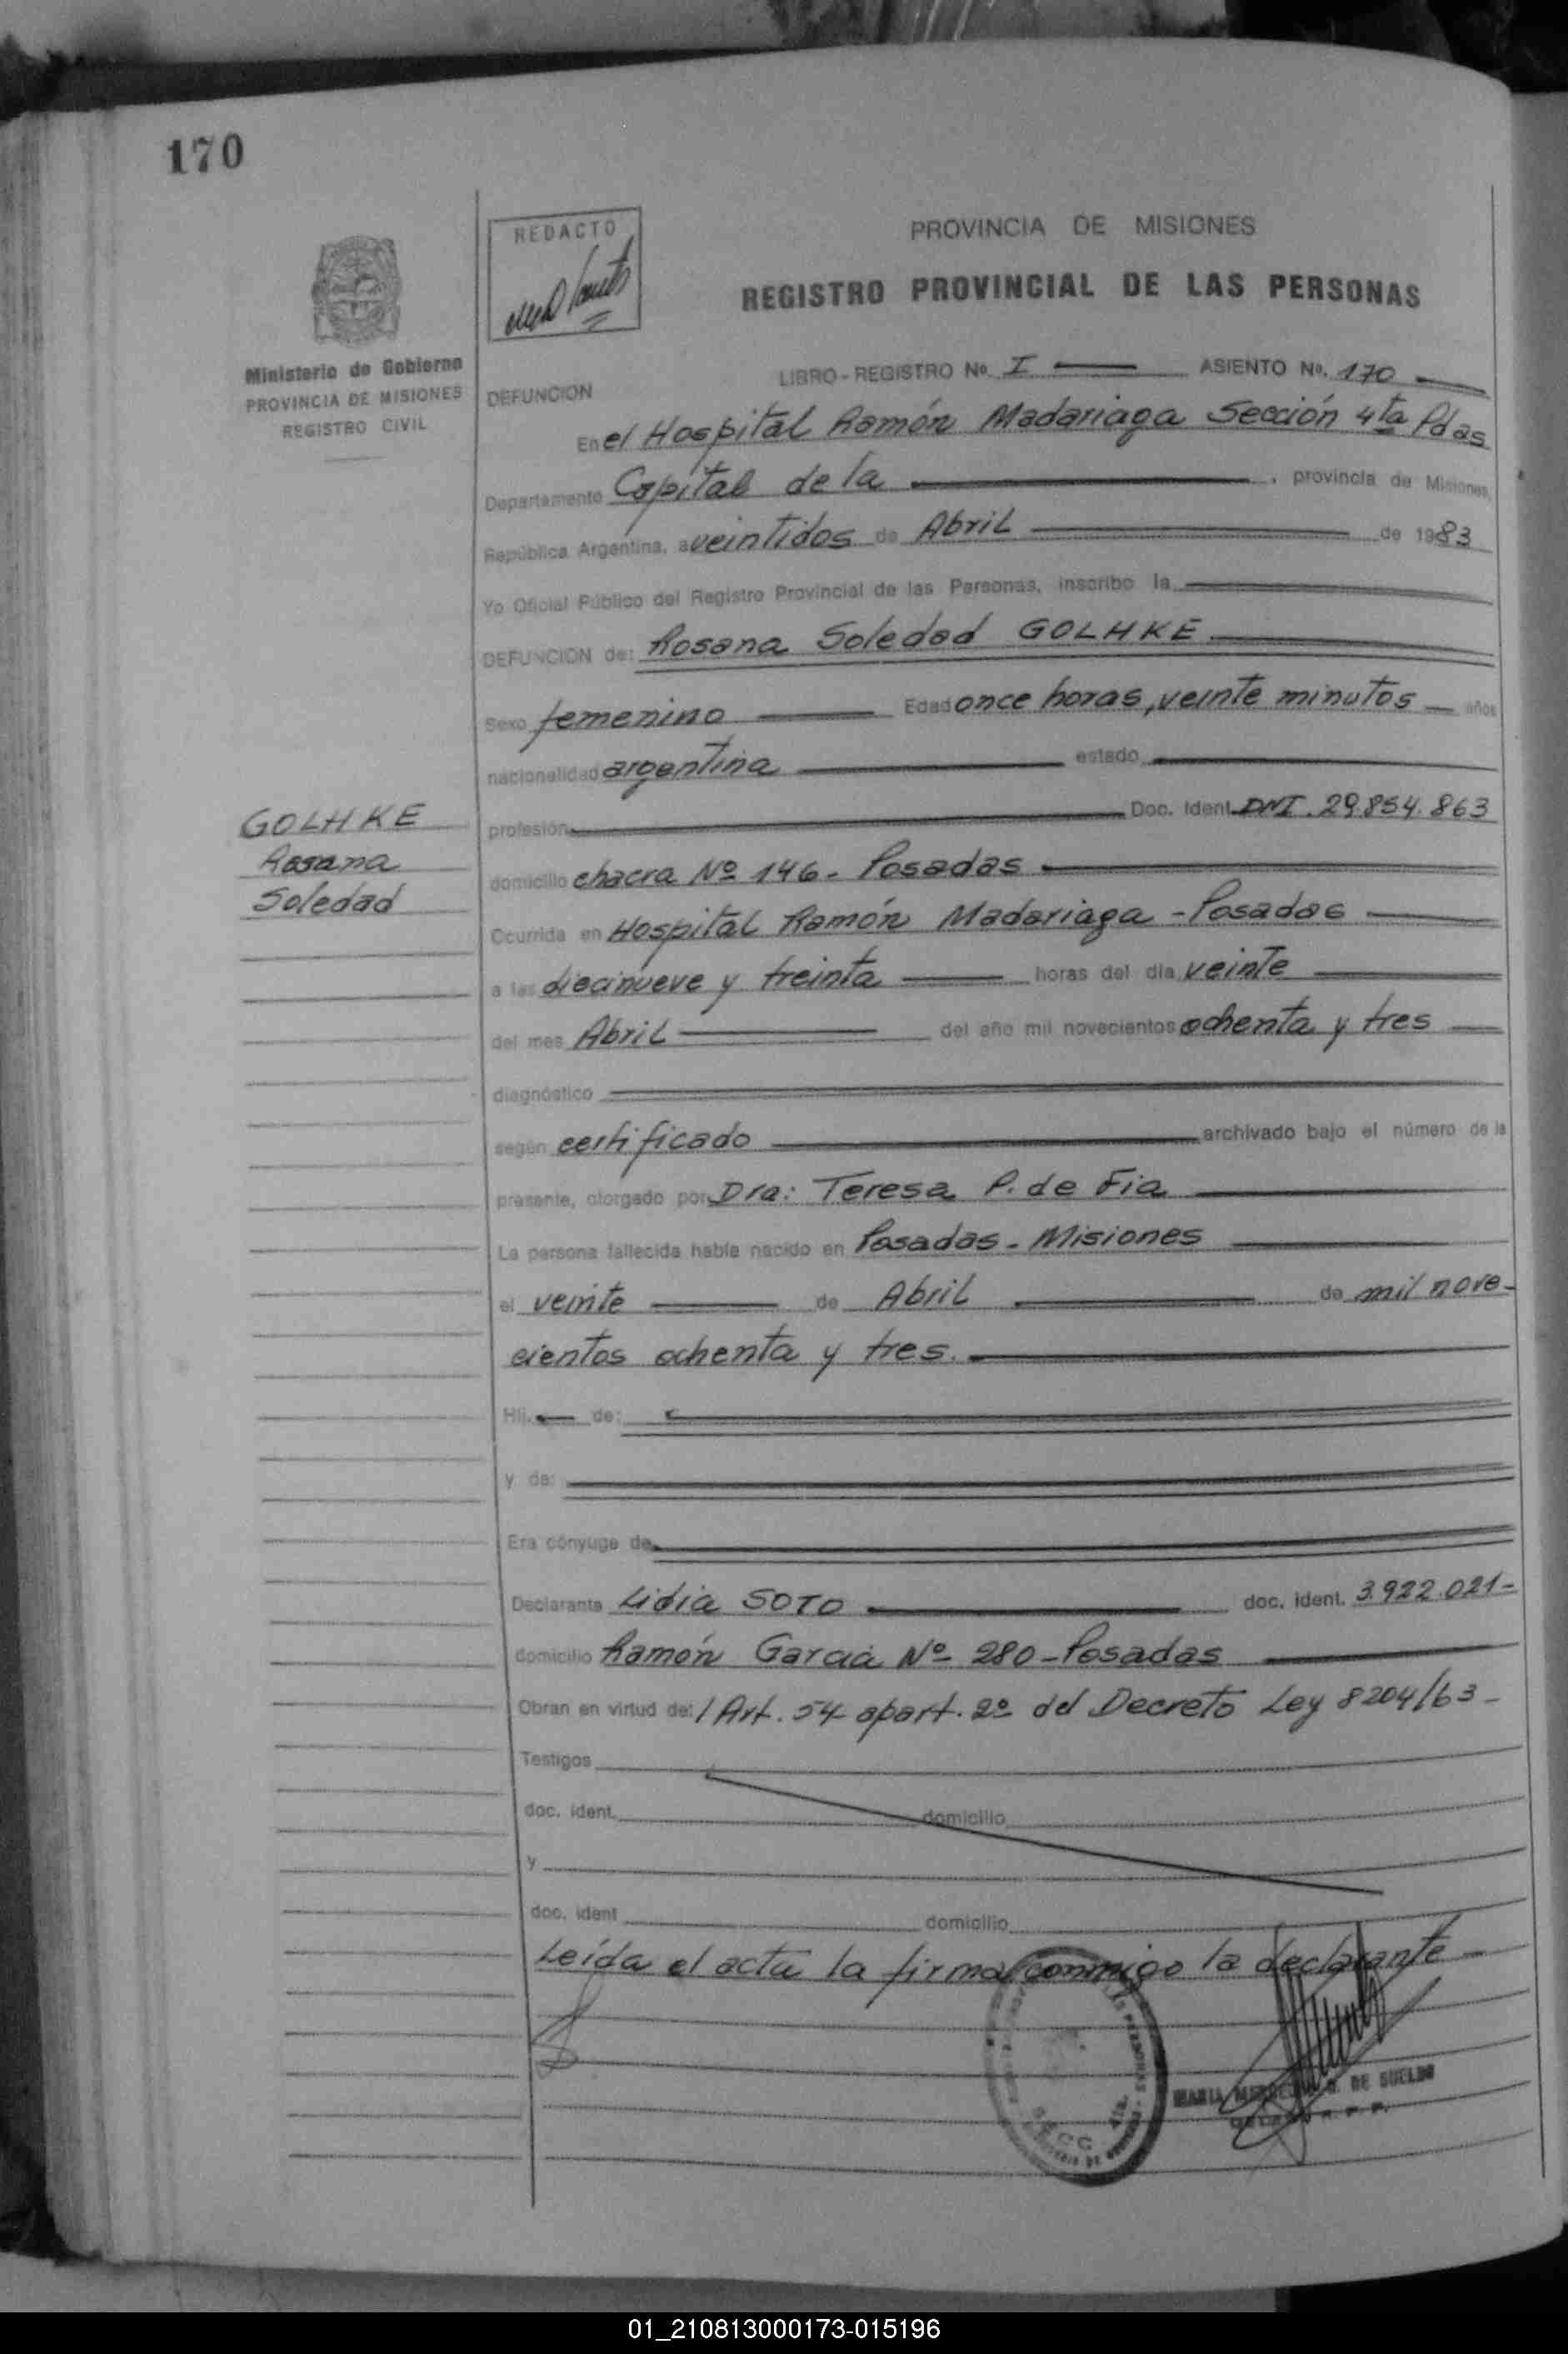 170
REDACTO
PROVINCIA DE MISIONES
REGISTRO PROVINCIAL DE LAS PERSONAS
Ministerio de Gobierno
PROVINCIA DE MISIONES
REGISTRO CIVIL
LIBRO - REGISTRO Nº I ASIENTO Nº. 170
DEFUNCION
En el Hospital Ramón Madariaga Sección 4ta Pdas
Departamento Capital de la , provincia de Misiones,
República Argentina, a veintidos de Abril de 1983
Yo Oficial Público del Registro Provincial de las Personas, inscribo la
DEFUNCION de: Rosana Soledad GOLHKE
Sexo femenino Edad once horas, veinte minutos años
nacionalidad argentina estado
profesión Doc. Ident. DNI. 29.854.863
GOLHKE
Rosana
Soledad
domicilio chacra Nº 146- Posadas
Ocurrida en Hospital Ramón Madariaga - Posadas
a las diecinueve y treinta horas del día veinte
del mes Abril del año mil novecientos ochenta y tres
diagnóstico
según certificado archivado bajo el número de la
presente, otorgado por Dra: Teresa P. de Fia
La persona fallecida había nacido en Posadas - Misiones
el veinte de Abril de mil nove-
cientos ochenta y tres.
Hij. de:
y de:
Era cónyuge de
Declarante Lidia SOTO doc. ident. 3.922.021-
domicilio Ramón Garcia Nº 280-Posadas
Obran en virtud de: / Art. 54 apart. 2º del Decreto Ley 8204/63-
Testigos
doc. ident. domicilio
y
doc. ident domicilio
Leída el acta la firma conmigo la declarante
MARIA DE SUELDO
SECC. 4ta.
01_210813000173-015196